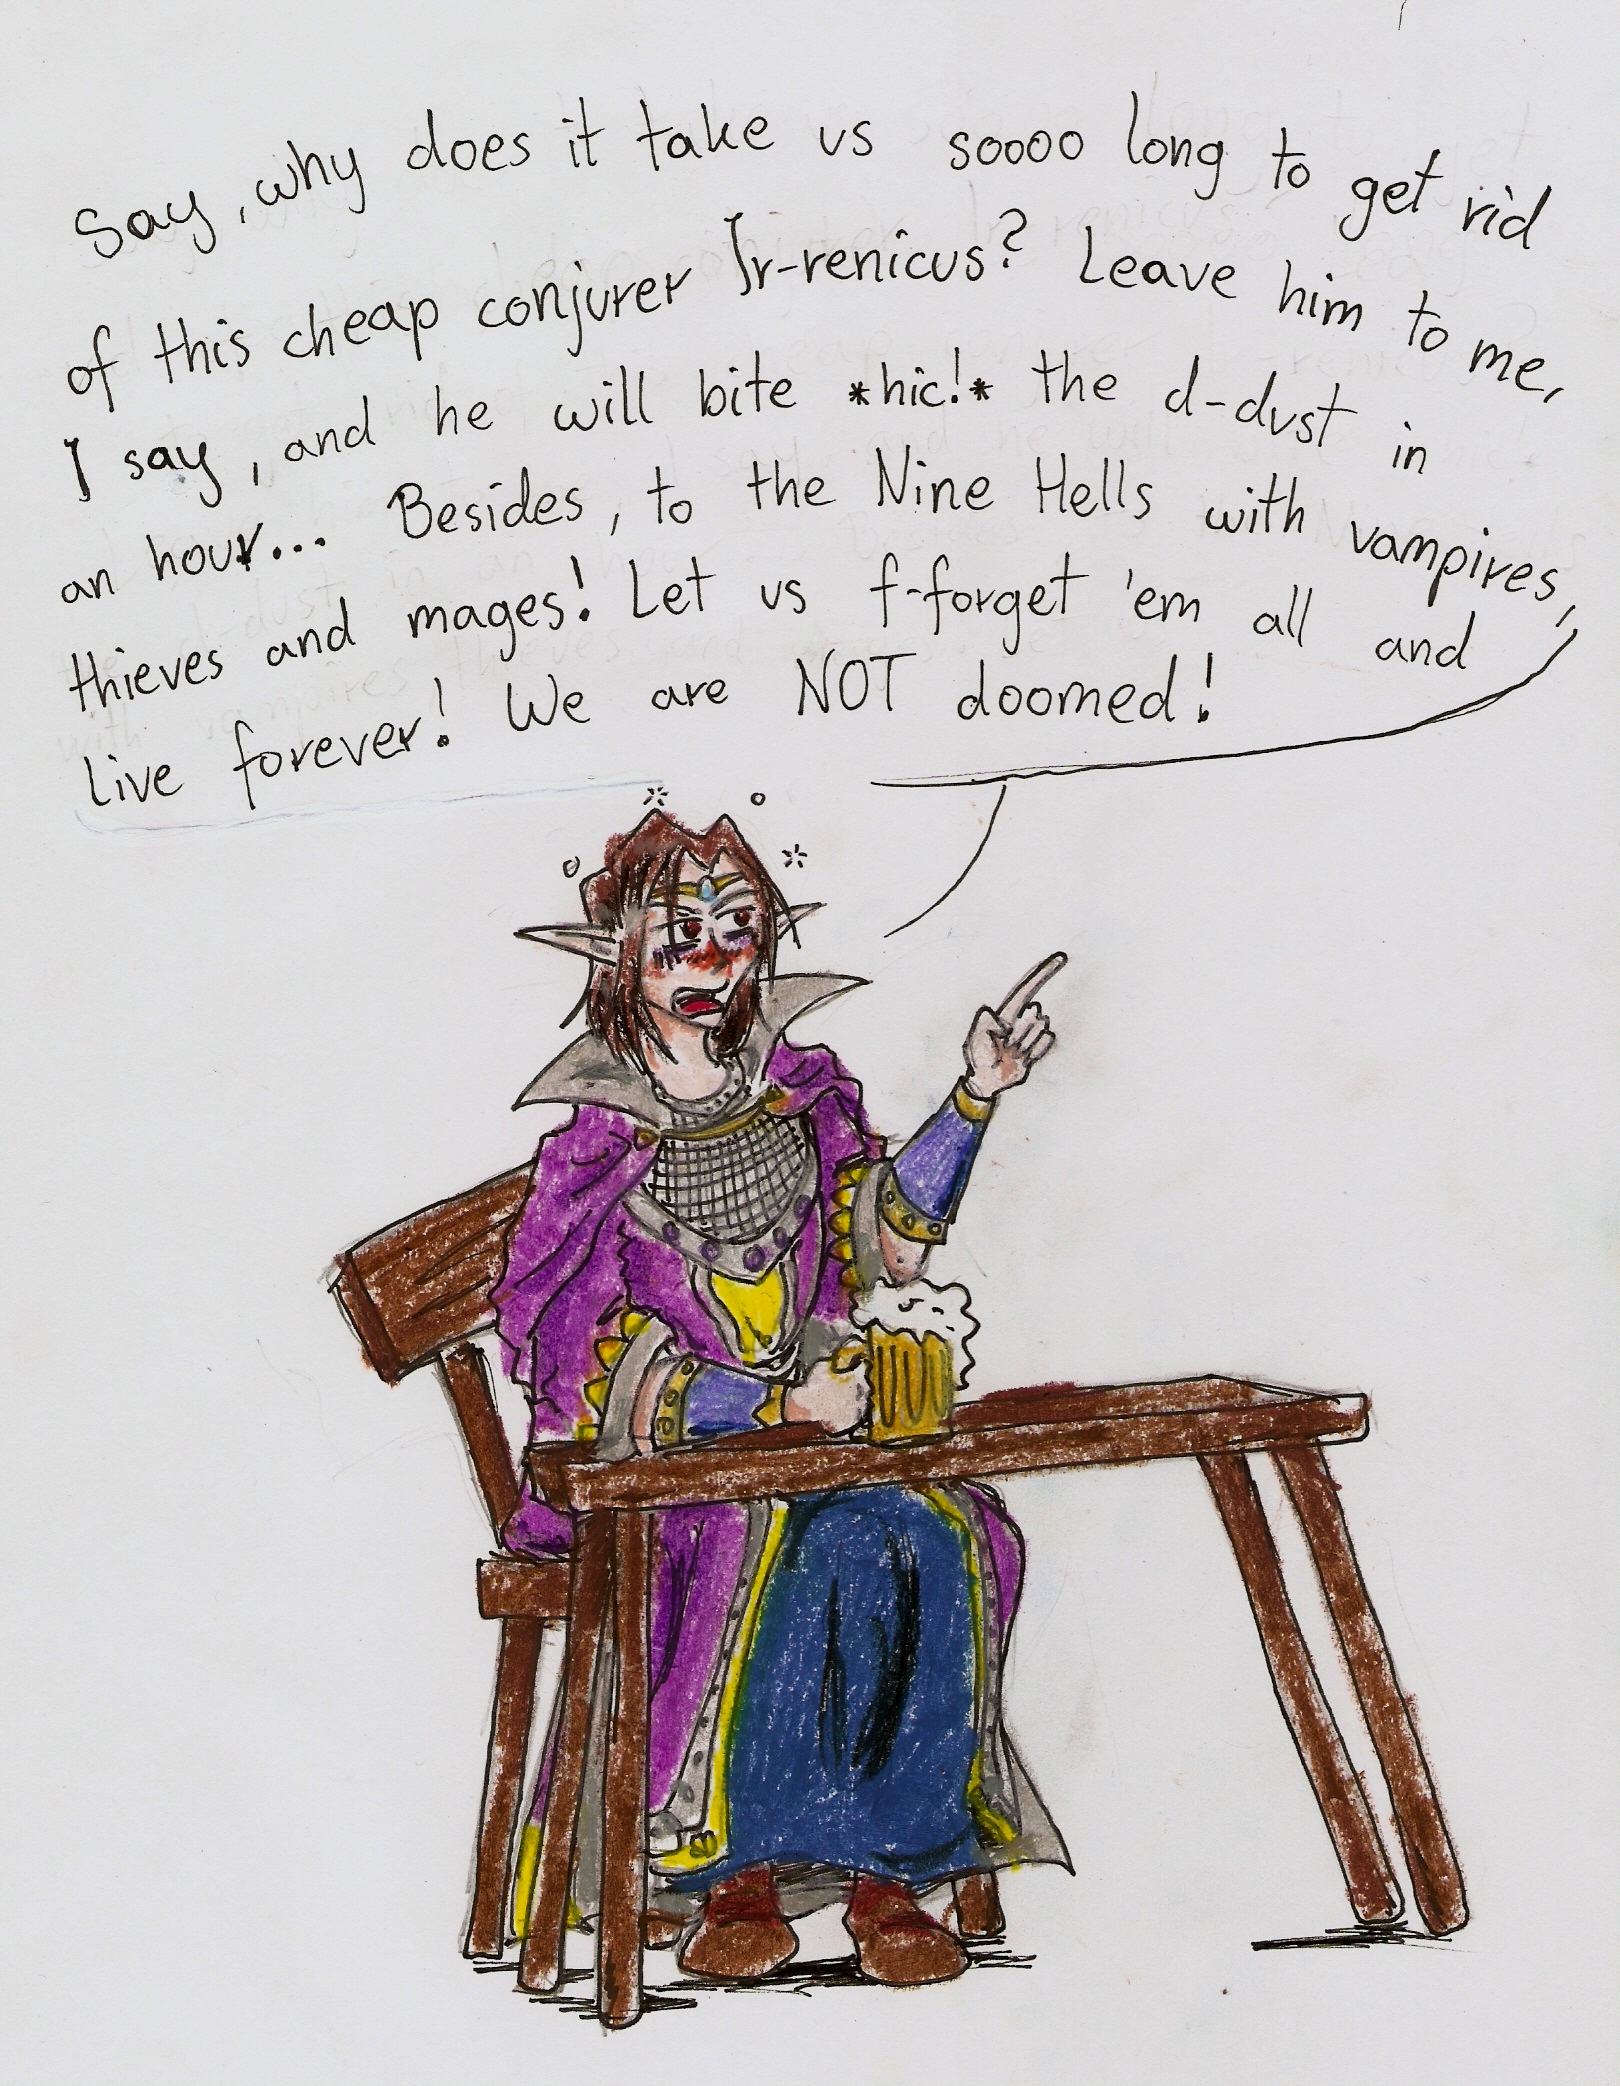 Say, why does it take us soooo long to get rid
of this cheap conjurer Ir-renicus? Leave him to me,
I say, and he will bite *hic!* the d-dust in
an hour... Besides, to the Nine Hells with vampires,
thieves and mages! Let us f-forget 'em all and
live forever! We are NOT doomed!